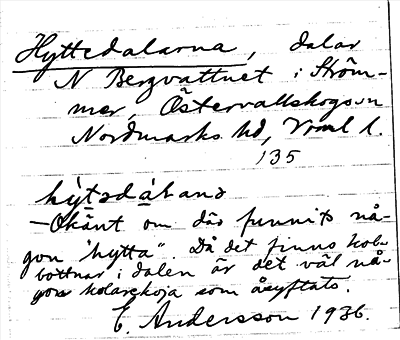 Hyttedalarna, dalar
N Bergvattnet i Ström-
mer, Östervallskogs sn
Nordmarks hd, Vrml l.
135
hy̆tsdáɫana
— Okänt om där funnits nå-
gon "hytta". Då det finns kol-
bottnar i dalen är det väl nå-
gon kolarekoja som åsyftats.
E. Andersson 1936.